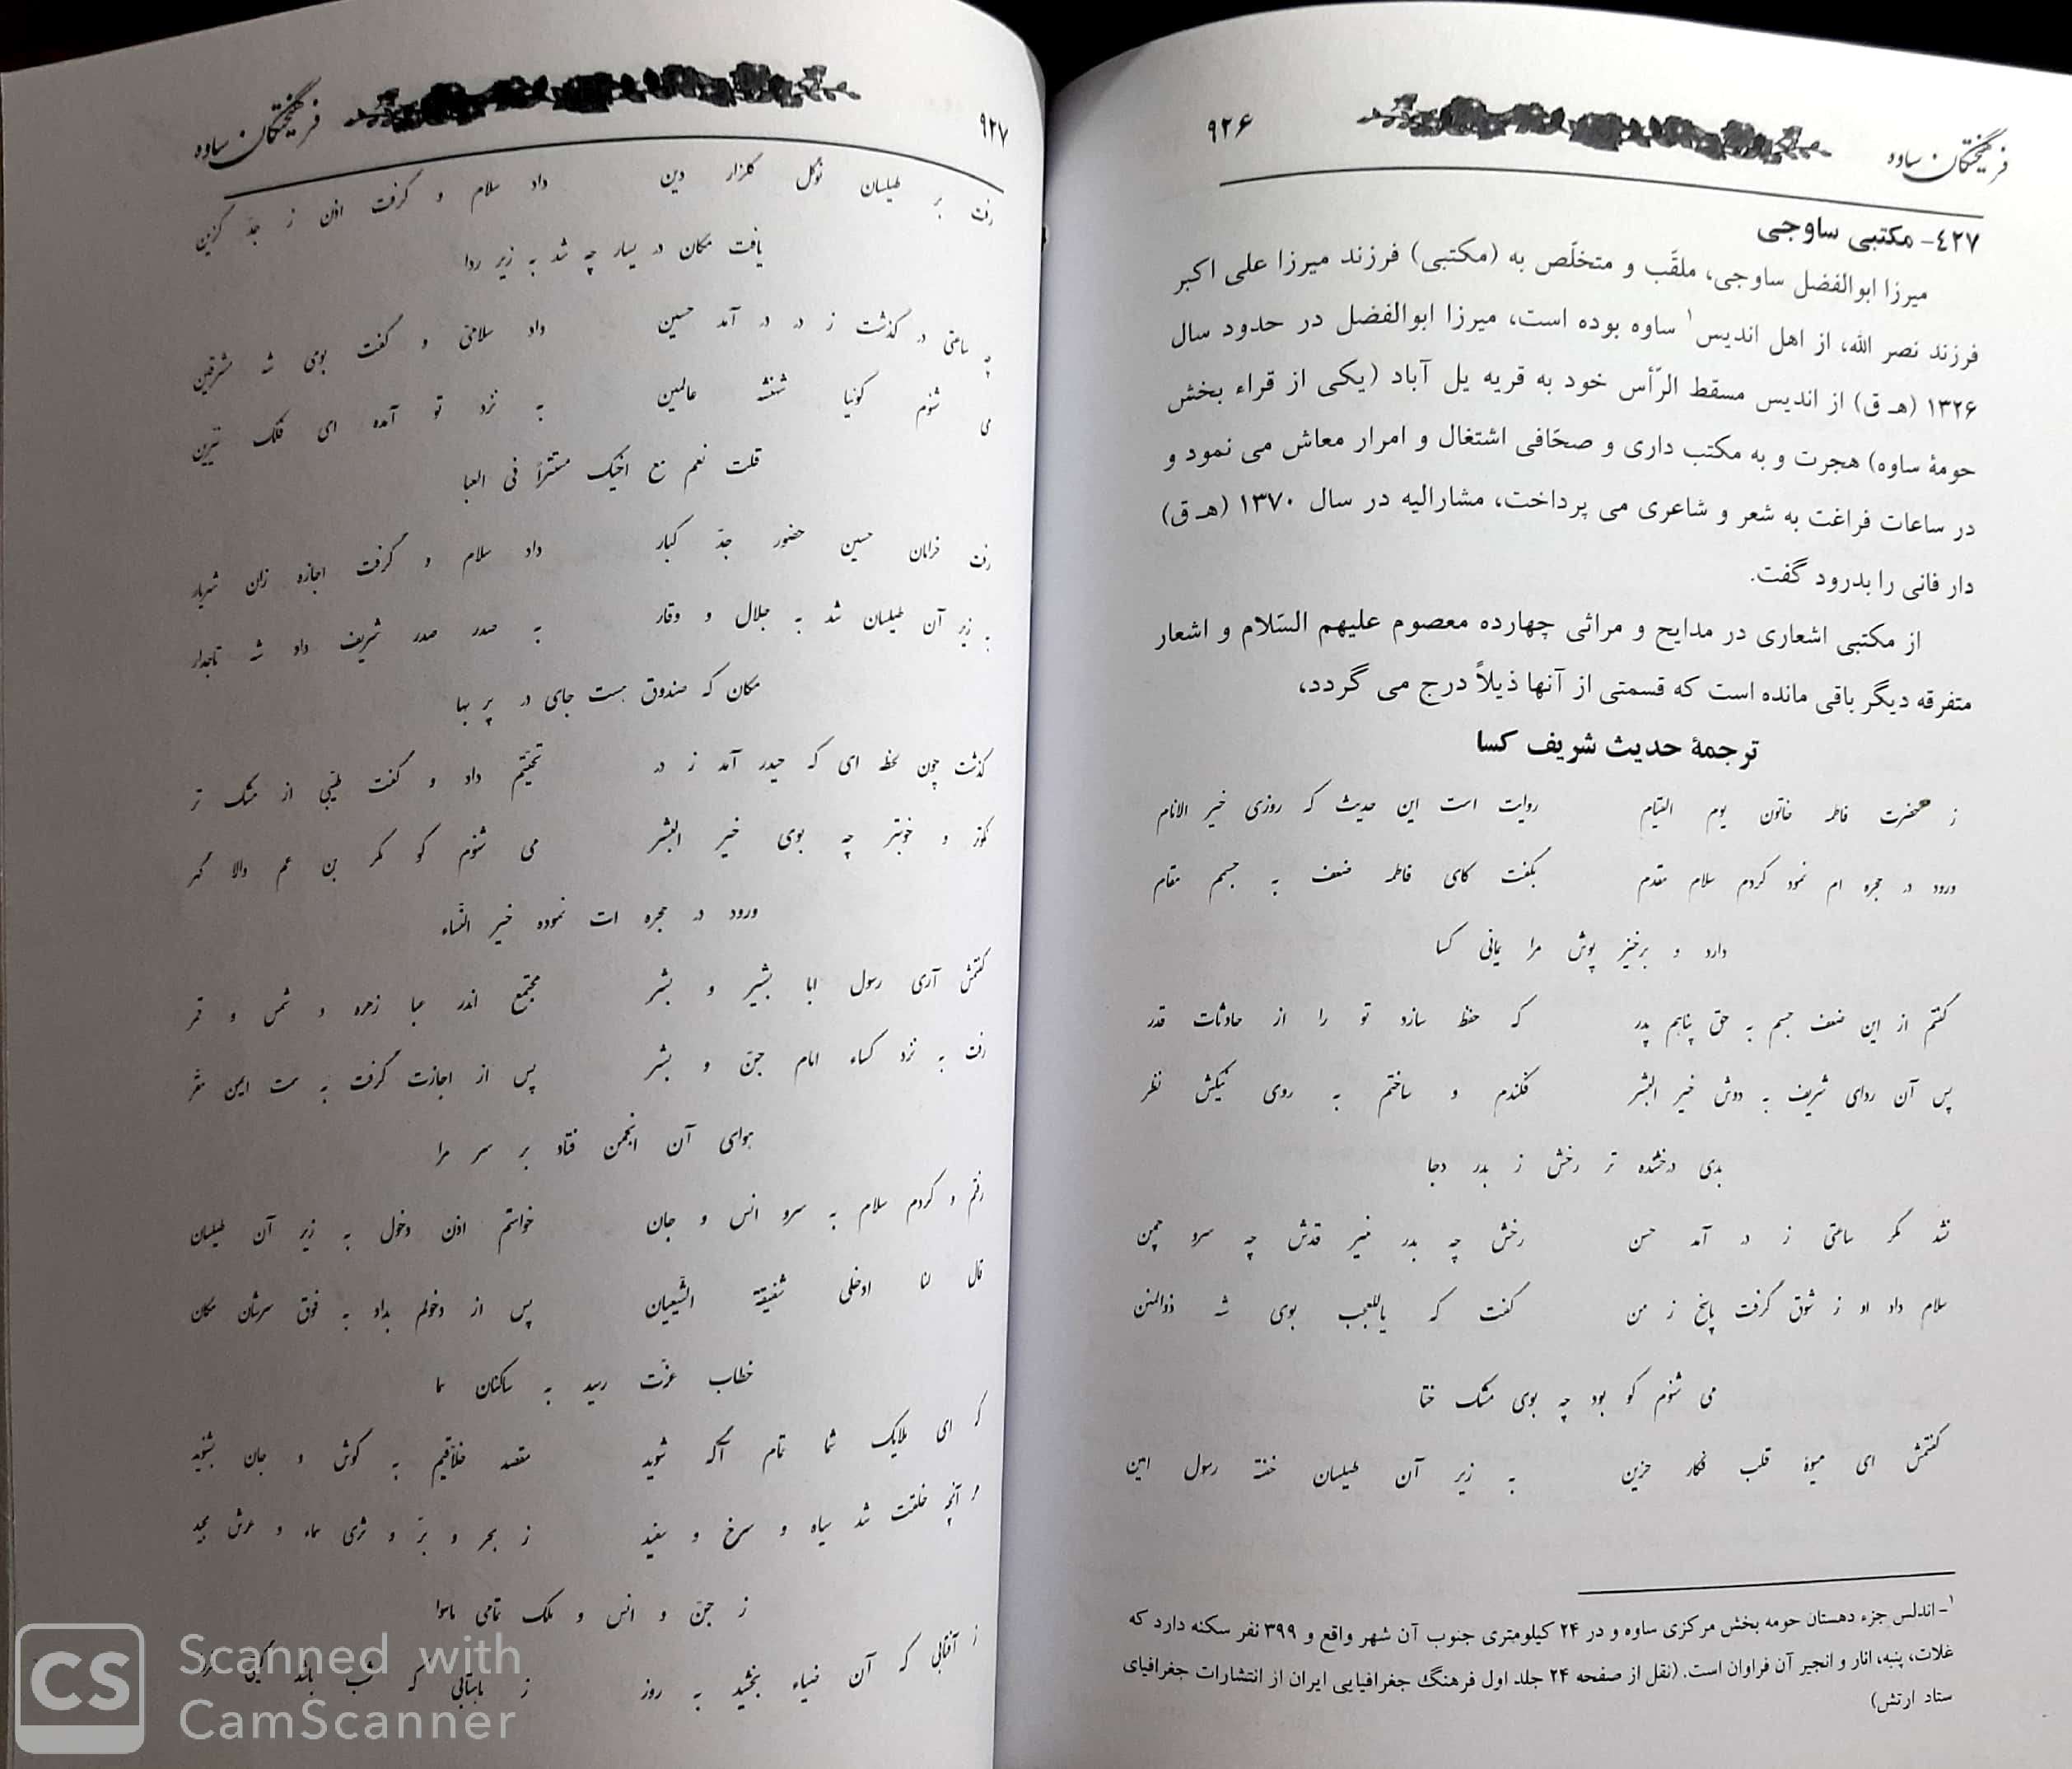 فرهیختگان ساوه
۹۲۶
٤٢٧- مکتبی ساوجی
میرزا ابوالفضل ساوجی، ملقّب و متخلّص به (مکتبی) فرزند میرزا علی اکبر
فرزند نصر الله، از اهل اندیس۱ ساوه بوده است، میرزا ابوالفضل در حدود سال
۱۳۲۶ (هـ ق) از اندیس مسقط الرّأس خود به قریه یل آباد (یکی از قراء بخش
حومهٔ ساوه) هجرت و به مکتب داری و صحّافی اشتغال و امرار معاش می نمود و
در ساعات فراغت به شعر و شاعری می پرداخت، مشارالیه در سال ۱۳۷۰ (هـ ق)
دار فانی را بدرود گفت.
از مکتبی اشعاری در مدایح و مراثی چهارده معصوم علیهم السّلام و اشعار
متفرقه دیگر باقی مانده است که قسمتی از آنها ذیلاً درج می گردد،
ترجمهٔ حدیث شریف کسا
ز حضرت فاطمه خاتون یوم القیام روایت است این حدیث که روزی خیر الانام
ورود در حجره ام نمود کردم سلام مقدم بگفت کای فاطمه ضعف به جسمم مقام
دارد و برخیز پوش مرا یمانی کسا
گفتم از این ضعف جسم به حق پناهم پدر که حفظ سازد تو را از حادثات قدر
پس آن ردای شریف به دوش خیر البشر فکندم و ساختم به روی نیکش نظر
بدی درخشنده تر رخش ز بدر دجا
نشد مگر ساعتی ز در آمد حسن رخش چه بدر منیر قدش چه سرو چمن
سلام داد او ز شوق گرفت پاسخ ز من گفت که یاللعجب بوی شه ذوالمنن
می شنوم کو بود چه بوی مشک ختا
گفتمش ای میوهٔ قلب فکار حزین به زیر آن طیلسان خفته رسول امین
۱- اندلس جزء دهستان حومه بخش مرکزی ساوه و در ۲۴ کیلومتری جنوب آن شهر واقع و ۳۹۹ نفر سکنه دارد که
غلات، پنبه، انار و انجیر آن فراوان است. (نقل از صفحه ۲۴ جلد اول فرهنگ جغرافیایی ایران از انتشارات جغرافیای
ستاد ارتش)
۹۲۷
فرهیختگان ساوه
رفت بر طیلسان نوگل گلزار دین داد سلام و گرفت اذن ز جدّ گزین
یافت مکان در یسار چه شد به زیر ردا
چه ساعتی در گذشت ز در در آمد حسین داد سلامی و گفت بوی شه مشرقین
می شنوم گوئیا شهنشه عالمین به نزد تو آمده ای فلک نیّرین
قلت نعم مع اخیک مستتراً فی العبا
رفت خرامان حسین حضور جدّ کبار داد سلام و گرفت اجازه زان شهریار
به زیر آن طیلسان شد به جلال و وقار به صدر صدر شریف داد شه تاجدار
مکان که صندوق هست جای در پر بها
گذشت چون لحظه ای که حیدر آمد ز در تحیّتم داد و گفت طیّبی از مشک تر
نکوتر و خوبتر چه بوی خیر البشر می شنوم کو مگر بن عم والا گهر
ورود در حجره ات نموده خیر النّساء
گفتمش آری رسول ابا بشیر و بشر مجتمع اندر عبا زهره و شمس و قمر
رفت به نزد کساء امام جنّ و بشر پس از اجازت گرفت به سمت ایمن مقرّ
هوای آن انجمن فتاد بر سر مرا
رفتم و کردم سلام به سرو انس و جان خواستم اذن دخول به زیر آن طیلسان
قال لنا ادخلی شفیقة الشّیعیان پس از دخولم بداد به فوق سرشان مکان
خطاب عزّت رسید به ساکنان سما
که ای ملایک شما تمام آگه شوید مقصد خلاّقیم به گوش و جان بشنوید
هر آنچه خلقت شد سیاه و سرخ و سفید ز بحر و برّ و ثری سماء و عرش مجید
ز جنّ و انس و ملک تمامی ماسوا
ز آفتابی که آن ضیاء بخشید به روز ز ماهتابی که شب باشد
CS Scanned with
CamScanner